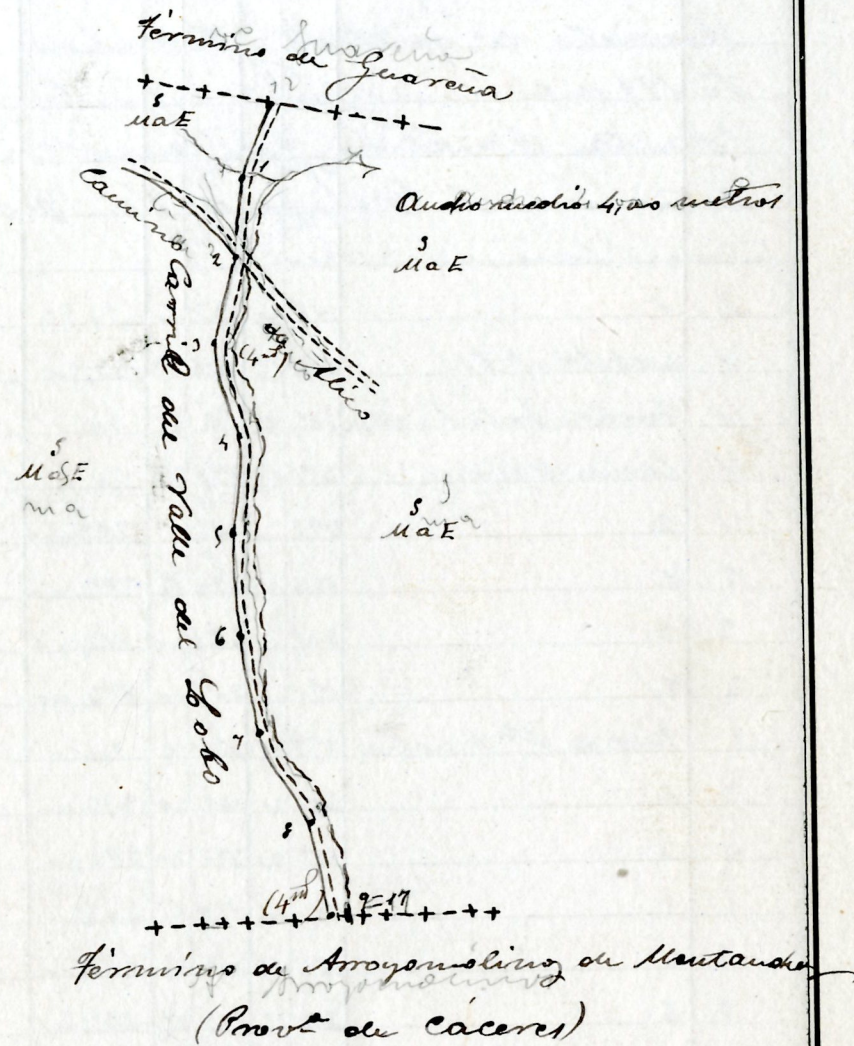 Término de Guareña
12
S
MaE
1
Ancho medio 4,00 metros
S
MaE
Camino
de
Carril del Valle del Lobo
2
3
(4m)
4
S
MaE
ma
5
S
MaE
ma
6
7
8
(4m)
9=17
Término de Arroyomolinos de Montanchez
(Provª de Cáceres)